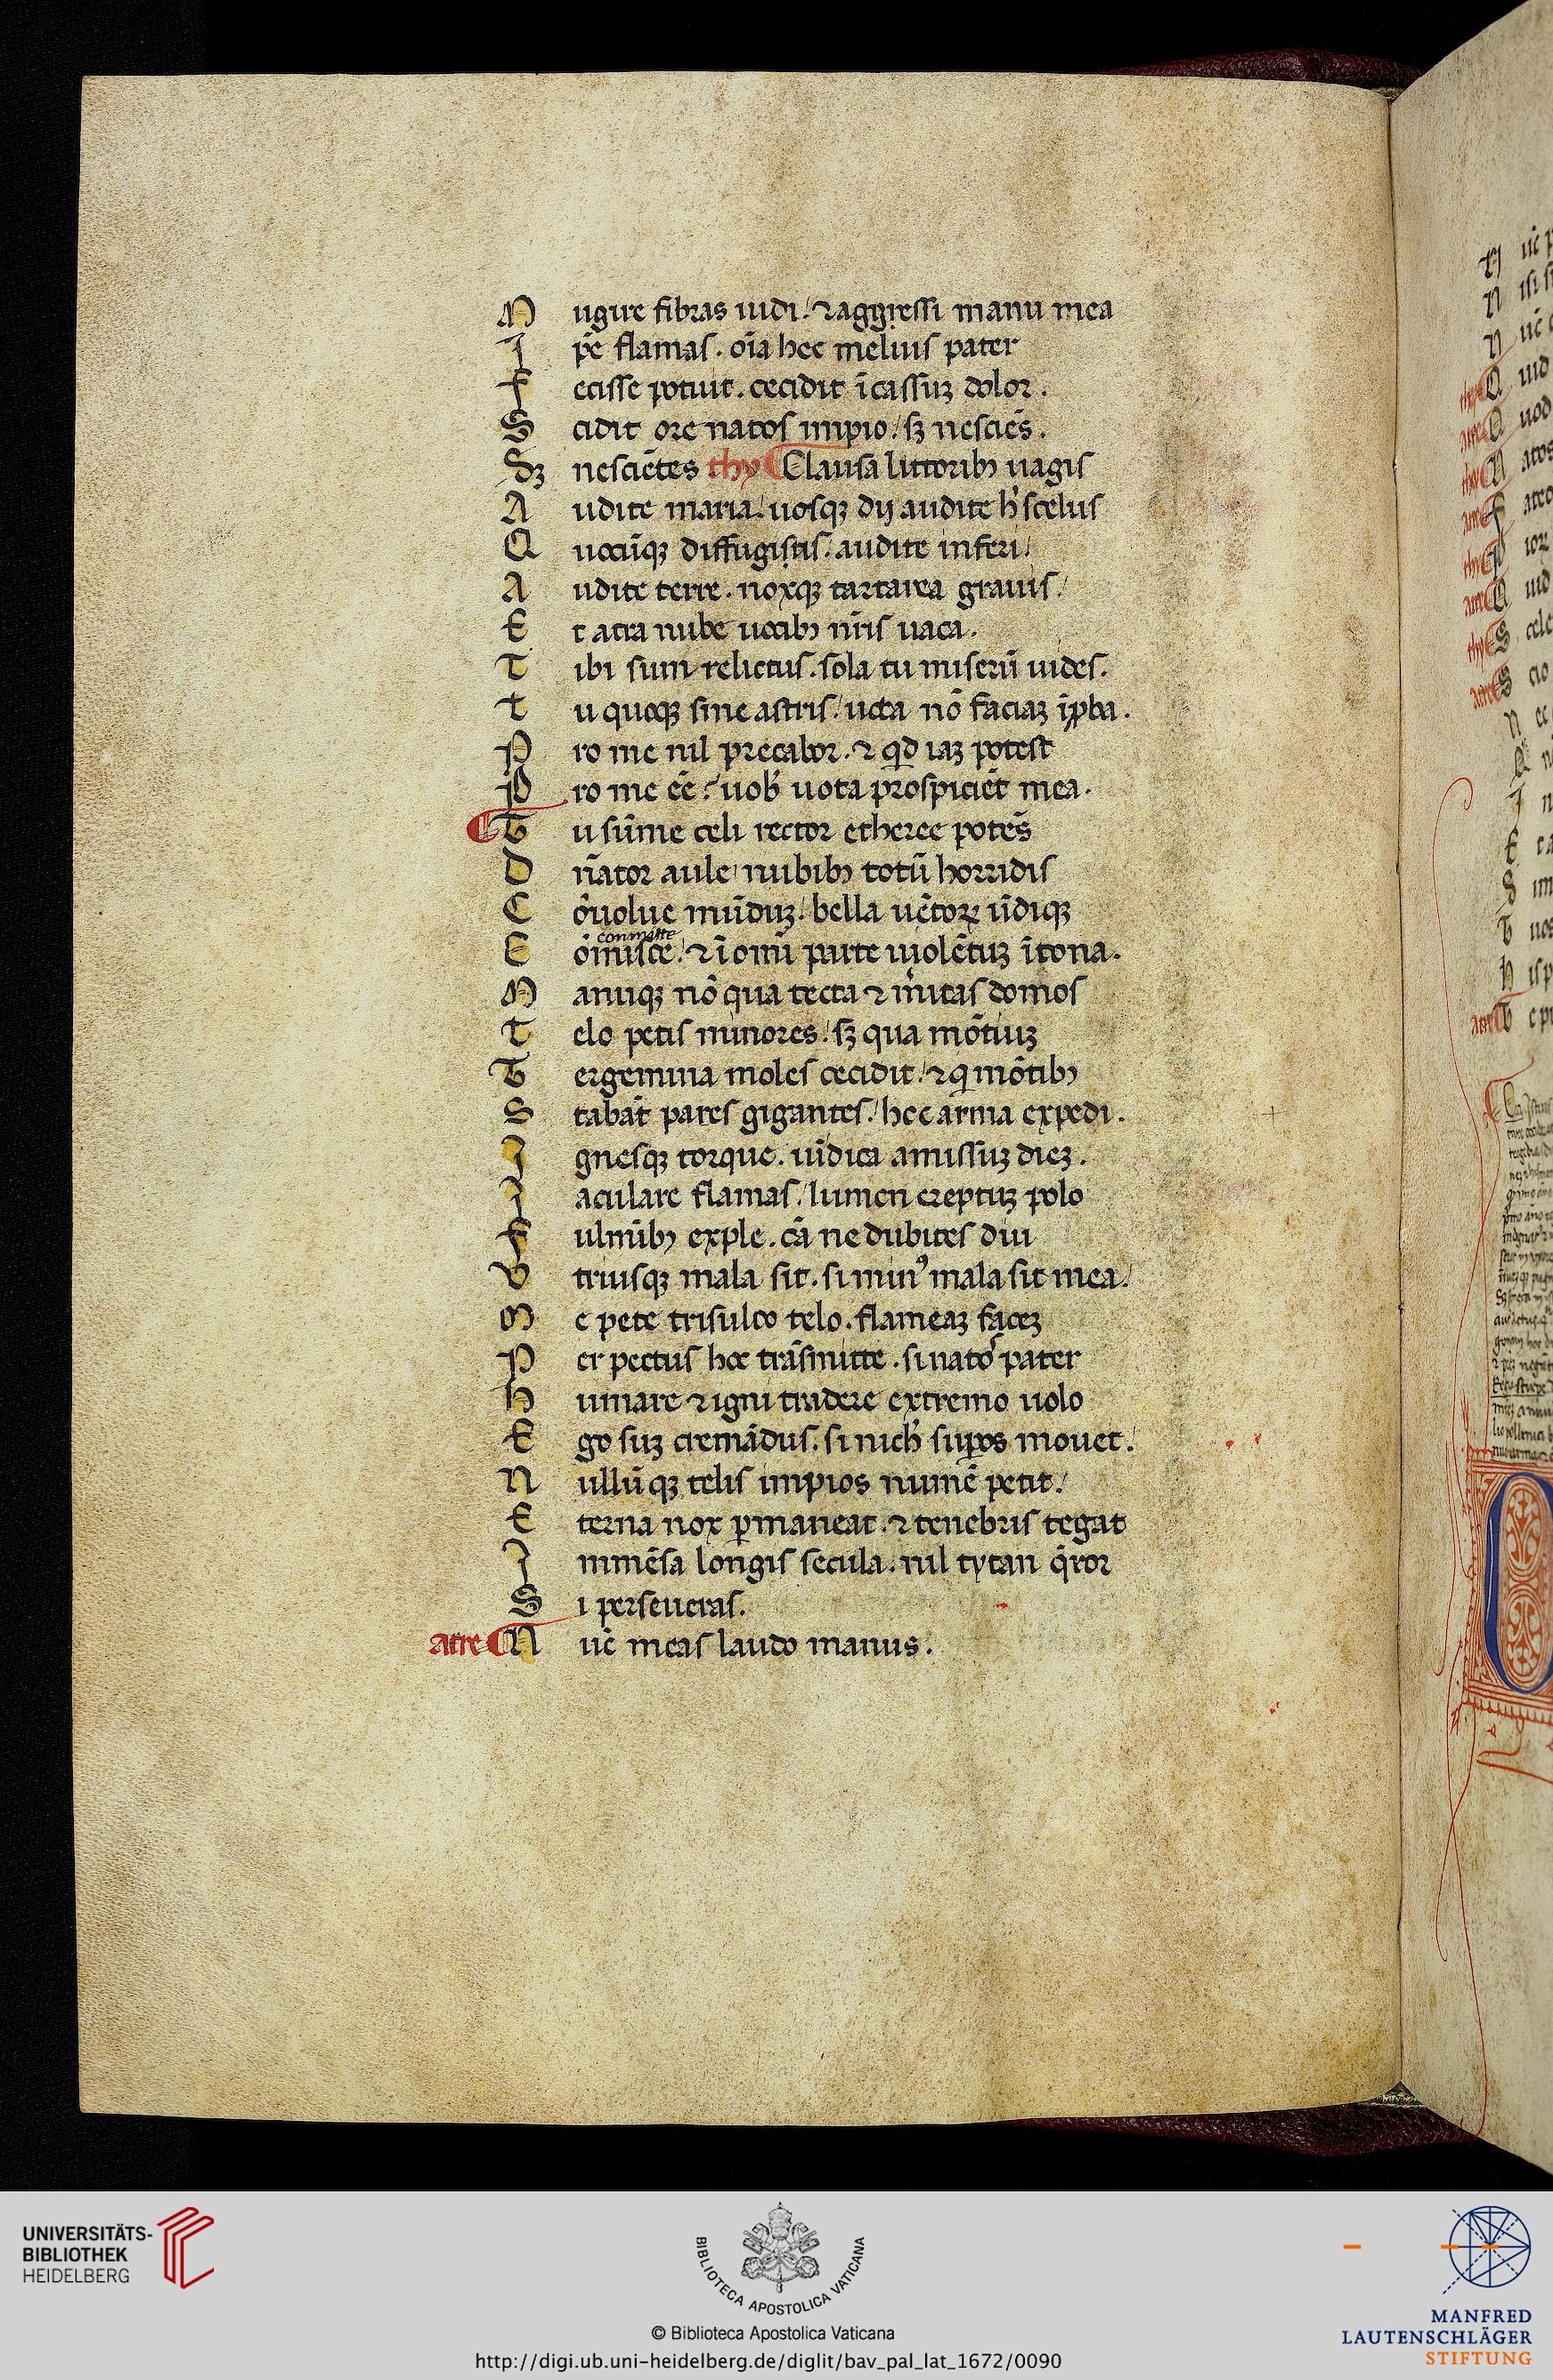 M ugire fibras uidi. ⁊ aggressi manu mea
I p̄e flamas. oīa hec melius pater
F ecisse potuit. cecidit ī cassuꝫ dolor.
S cidit ore natos impio. sꝫ nesciēs.
Sꝫ nesciētes thy Clausa littoribꝫ uagis
A udite maria. uosqꝫ dij audite h' scelus
Q uocūqꝫ diffugistis. audite inferi
A udite terre. noxqꝫ tartarea grauis
E t atra nube uocibꝫ nr̄is uaca.
T ibi sum relictus. sola tu miserū uides.
t u quoqꝫ sine astris. uota nō faciaꝫ īꝓba.
P ro me nil precabor. ⁊ qid iaꝫ potest
P ro me eē? uob' uota prospiciēt mea.
T u sūme celi rector etheree potēs
D n̄ator aule nubibꝫ totū horridis
C ōuolue mūduꝫ. bella uētoꝝ ūdiqꝫ
C ōmisce. ⁊ ī om̄i parte uiolētuꝫ ītona.
committe
M anuqꝫ nō qua tecta ⁊ īm'itas domos
T elo petis minores. sꝫ qua mōtiuꝫ
T ergemina moles cecidit. ⁊ qi mōtibꝫ
S tabāt pares gigantes. hec arma expedi.
I gnesqꝫ torque. uīdica amissuꝫ dieꝫ.
I aculare flamas. lumen ereptuꝫ polo
F ulmībꝫ exple. cā ne dubites diu
V triusqꝫ mala sit. si min⁹ mala sit mea.
M e pete trisulco telo. flameaꝫ faceꝫ
P er pectus hoc trāsmitte. si natos pater
H umare ⁊ igni tradere extremo uolo
E go suꝫ cremādus. si nich' suꝑos mouet.
N ullūqꝫ telis impios numē petit.
E terna nox ꝑmaneat. ⁊ tenebris tegat
I mmēsa longis secula. nil tytan qiror
S i perseueras.
atre N uc̄ meas laudo manus.
UNIVERSITÄTS-
BIBLIOTHEK
HEIDELBERG
BIBLIOTECA APOSTOLICA VATICANA
© Biblioteca Apostolica Vaticana
http://digi.ub.uni-heidelberg.de/diglit/bav_pal_lat_1672/0090
MANFRED
LAUTENSCHLÄGER
STIFTUNG